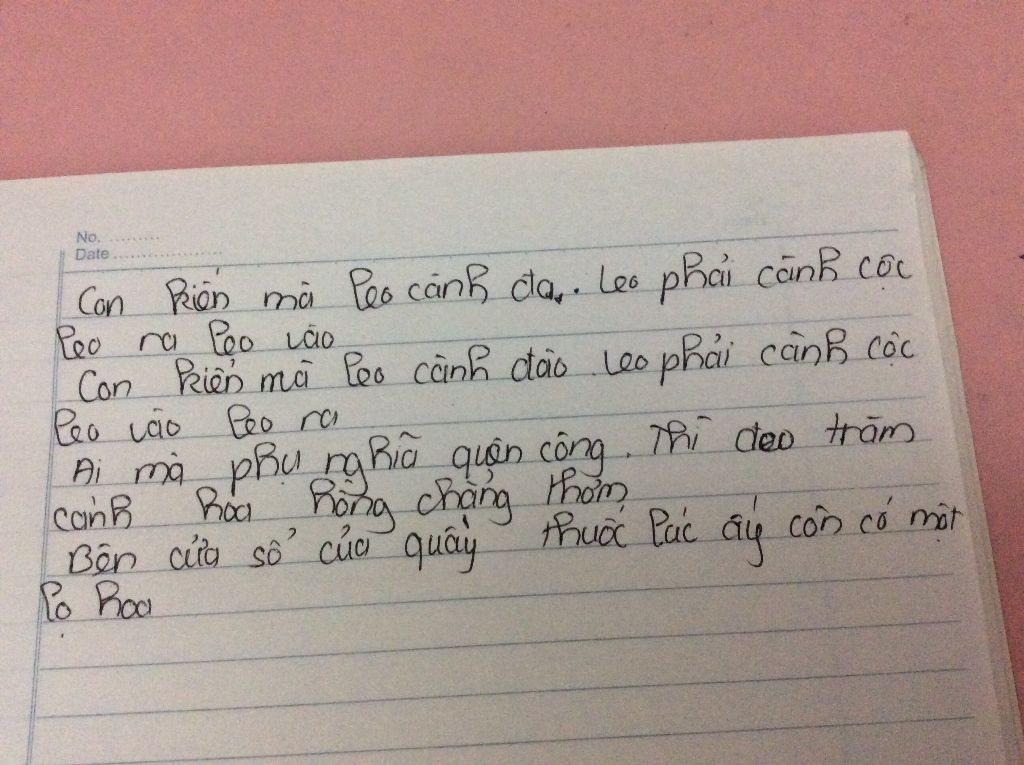 No. ..........
Date ....................
Con kiến mà leo cành đa. Leo phải cành cộc
leo ra leo vào
Con kiến mà leo cành đào. Leo phải cành cộc
leo vào leo ra
Ai mà phụ nghĩa quên công. Thì đeo trăm
cành hoa hồng chẳng thơm
Bên cửa sổ của quầy thuốc lúc ấy còn có một
lọ hoa